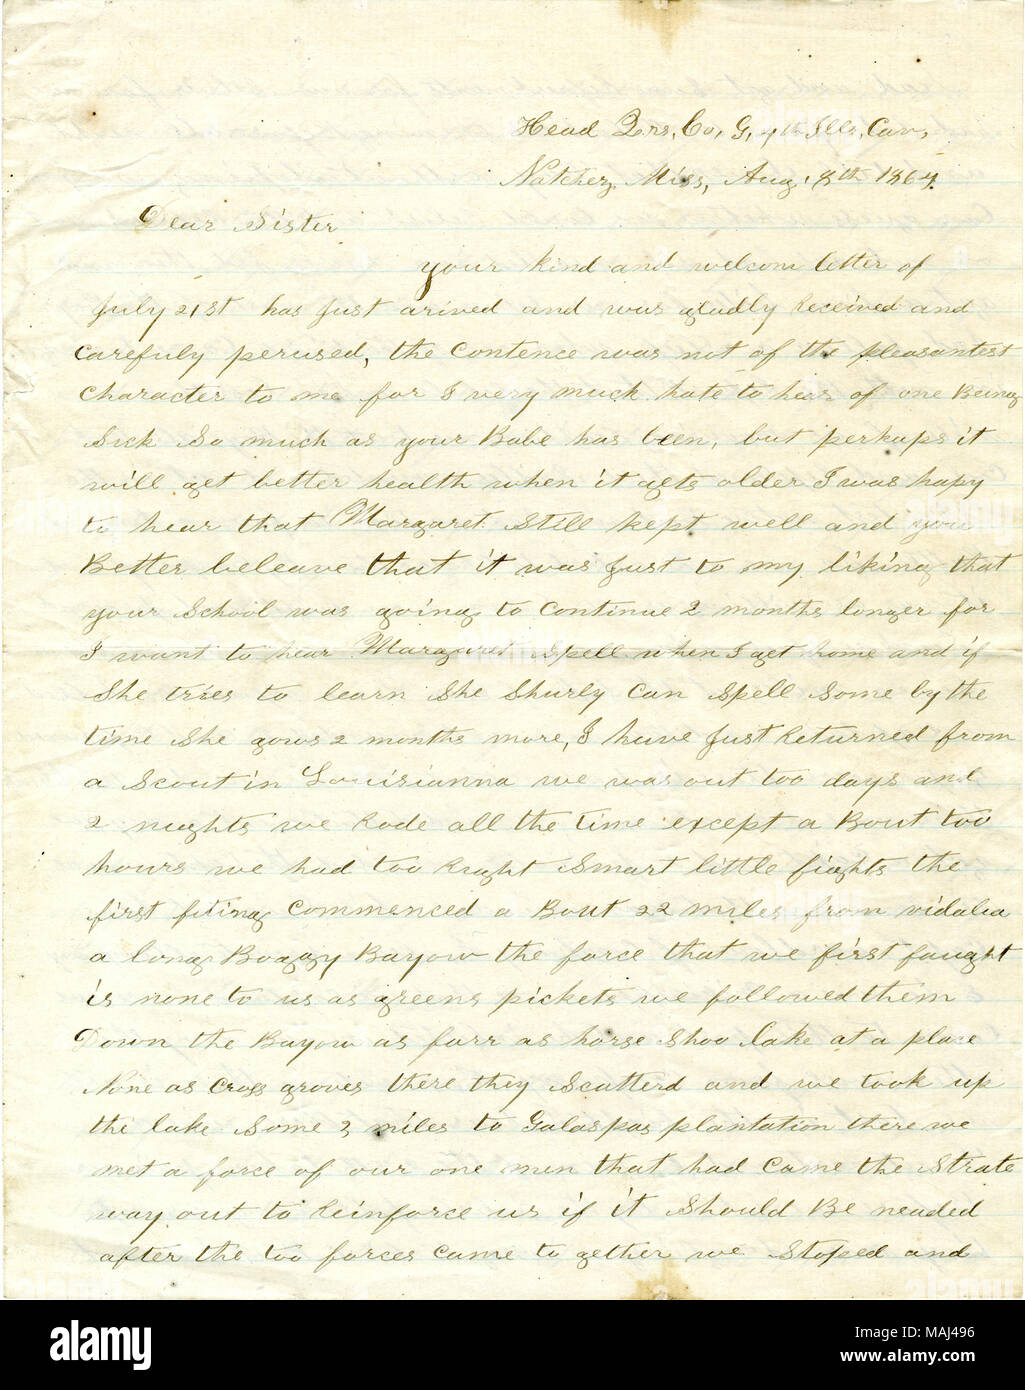 Head Qrs, Co, G, 4th Ills, Cav,
Natchez, Miss, Aug, 8th 1864.
Dear Sister
your kind and welcom letter of
July 21st has just arived and was gladly received and
carefuly perused, the contence was not of the pleasantest
character to me for I very much hate to hear of one Being
Sick So much as your Babe has been, but perhaps it
will get better health when it gets older I was hapy
to hear that Margaret Still kept well and you
Better beleave that it was just to my liking that
your School was going to continue 2 months longer for
I want to hear Margaret spell when I get home and if
She tries to learn She Shurly can spell some by the
time She gows 2 months more, I have just returned from
a Scout in Louisianna we was out too days and
2 nights we Rode all the time except a Bout too
hours we had too Right Smart little fights the
first fiting commenced a Bout 22 miles from vidalia
a long Boggy Bayow the force that we first faught
is none to us as greens pickets we followed them
Down the Bayow as farr as horse Shoo lake at a place
None as Cross groves there they Scatterd and we took up
the lake Some 3 miles to Galaspas plantation there we
met a force of our one men that had came the Strate
way out to Reinforce us if it Should Be neaded
after the too forces came to gether we Stoped and
alamy
Image ID: MAJ496
www.alamy.com